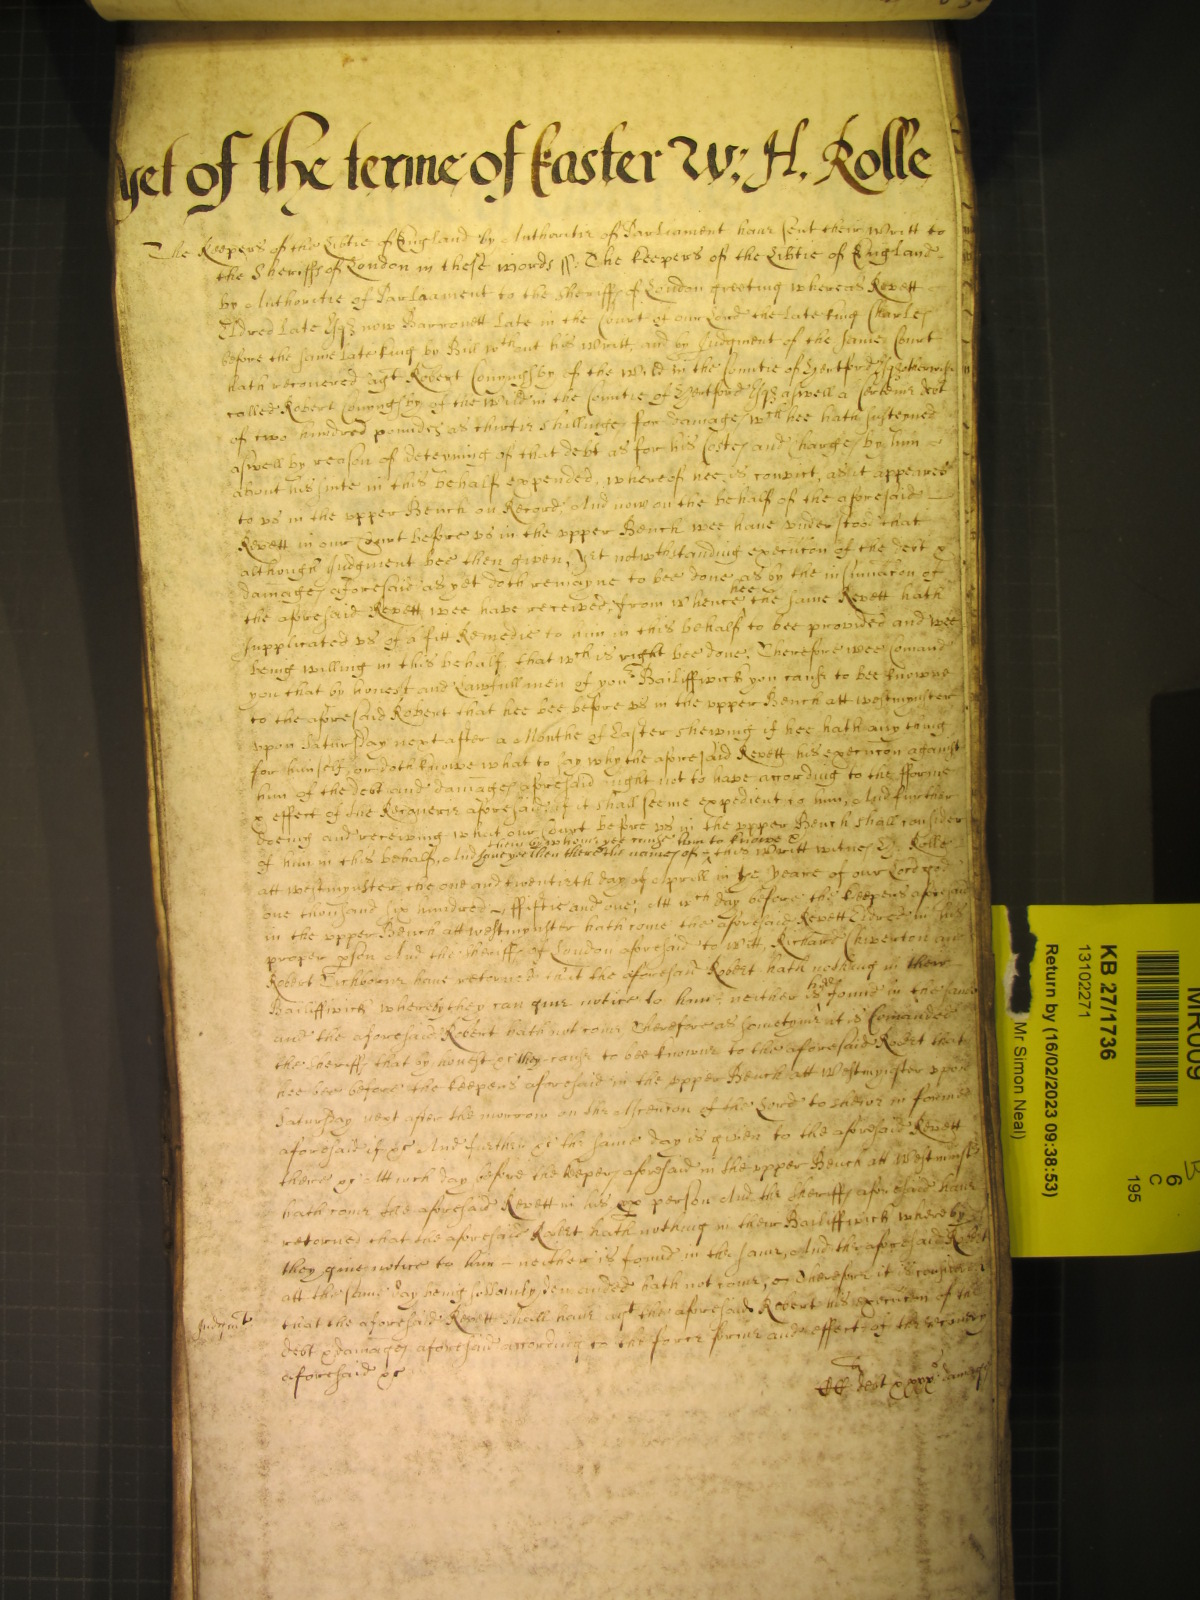 yet of the terme of Easter W: H. Rolle
The Keepers of the Libtie of England by Authoritie of Parliament haue sent their Writt to
the Sheriffs of London in these words ss. The keepers of the Libtie of England
by Authoritie of Parliament to the Sheriffs of London greeting whereas Revett
Eldred late Esqz now Barronett late in the Court of our Lord the late king Charles
before the same late king by Bill wthout his Writt, and by Judgment of the same Court
hath recovered agt Robert Conyngsby of the Wild in the Countie of Hertford Esqz otherwise
called Robert Conyngsby of the Wild in the Countie of Hertford Esqz aswell a certeine debt
of two hundred poundes as thirtie shillinges for damages wch hee hath susteyned
aswell by reason of deteyning of that debt as for his Costes and Charges by him
about his suite in this behalf expended, whereof hee is convict, as it appeares
to vs in the vpper Bench on Record And now on the behalf of the aforesaid
Revett in our Court before vs in the vpper Bench wee haue vnderstood that
although Judgment bee then given, yet notwthstanding execucon of the debt &
damages aforesaid as yet doth remayne to bee done, as by the insinuacon of
the aforesaid Revett wee haue received, from whence hee the same Revett hath
supplicated vs of a fitt Remedie to him in this behalf to bee provided and wee
being willing in this behalf that wch is right bee done: Therefore wee Comand
you that by honest and Lawfull men of your Bailiffwick you cause to bee knowne
to the aforesaid Robert that hee bee before vs in the vpper Bench att Westmynster
vpon Saturday next after a Monthe of Easter shewing if hee hath any thing
for himself, or doth knowe what to say why the aforesaid Revett his execucon against
him of the debt and damages aforesaid ought not to haue according to the fforme
& effect of the Recoverie aforesaid, if it shall seeme expedient to him, And further
doeing and receiving what our Court before vs in the vpper Bench shall consider
them by whome yee cause him to knowe &
of him in this behalf, And haue yee then there the names of this Writt witnes H: Rolle
att Westmynster the one and twentieth day of Aprill in the yeare of our Lord god
one thousand six hundred ffiftie and one, Att wch day before the keepers aforesaid
in the vpper Bench att Westmynster hath come the aforesaid Revett Eldred in his
proper pson And the Sheriffs of London aforesaid to witt, Richard Chiverton and
Robert Tichborne haue retorned that the aforesaid Robert hath nothing in their
Bailiffwick whereby they can giue notice to him neither is hee found in the same
and the aforesaid Robert hath not come Therefore as sometyms it is Comanded
the Sheriffs that by honest &c they cause to bee knowne to the aforesaid Robert that
hee bee before the keepers aforesaid in the vpper Bench att Westmynster vpon
Saturday next after the morrow on the Ascencon of the Lord to shewe in forme
aforesaid if &c And further &c the same day is given to the aforesaid Revett
there &c Att wch day before the keepers aforesaid in the vpper Bench att Westminst
hath come the aforesaid Revett in his person And the Sheriffs aforesaid haue
retorned that the aforesaid Robert hath nothing in their Bailiffwick whereby
they giue notice to him neither is found in the same, And the aforesaid Robert
att the same day being sollemnly demanded hath not come, Therefore it is considered
Judgmt
that the aforesaid Revett shall haue agt the aforesaid Robert his execucon of the
debt & damages aforesaid according to the force forme and effect of the recovery
aforesaid &c
debt xxxs damages
MR009
KB 27/1736
13102271
Return by (16/02/2023 09:38:53)
Mr Simon Neal)
6
C
195